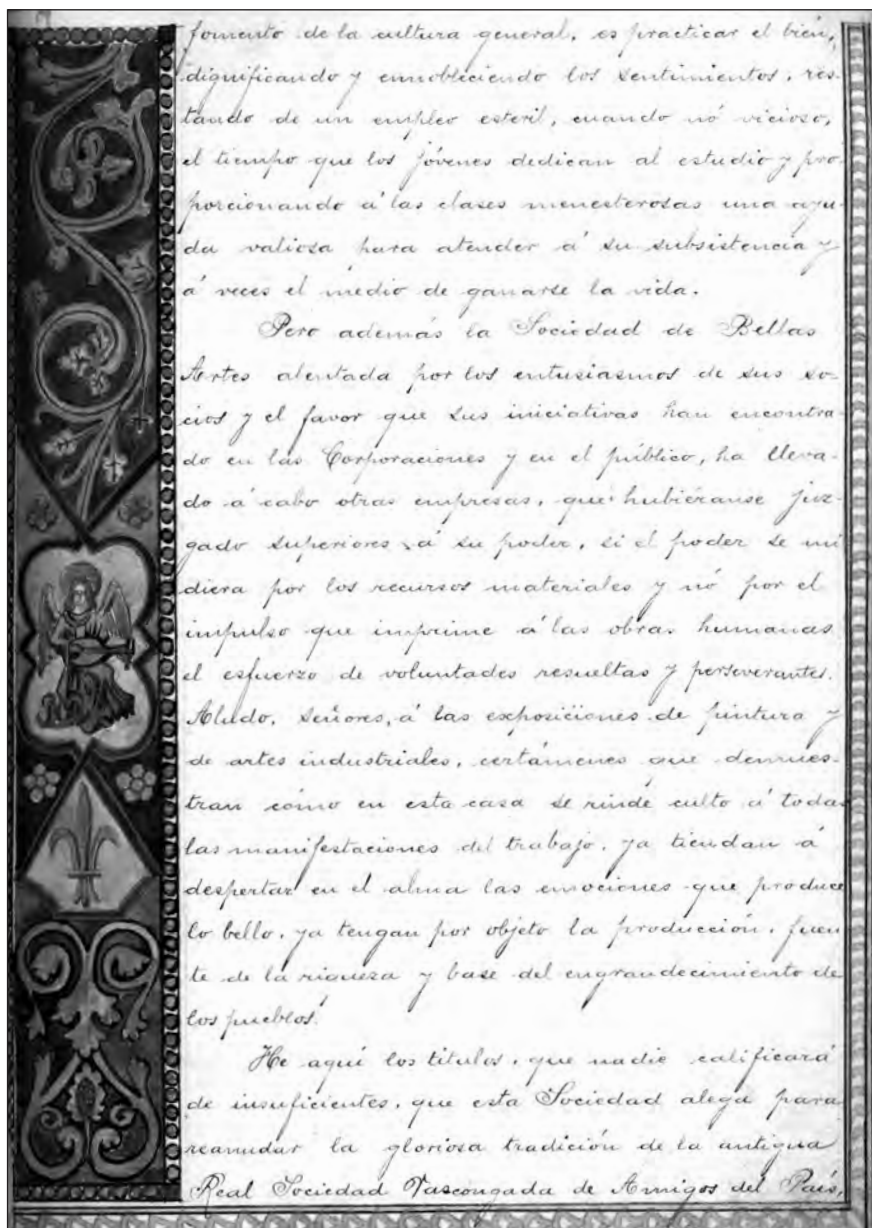 fomento de la cultura general, es practicar el bién,
dignificando y ennobleciendo los sentimientos, res-
tando de un empleo esteril, cuando nó vicioso,
el tiempo que los jóvenes dedican al estudio y pro-
porcionando á las clases menesterosas una ayu-
da valiosa para atender á su subsistencia y
á veces el medio de ganarse la vida.
Pero además la Sociedad de Bellas
Artes alentada por los entusiasmos de sus so-
cios y el favor que sus iniciativas han encontra-
do en las Corporaciones y en el público, ha lleva-
do á cabo otras empresas, que hubiéranse juz-
gado superiores á su poder, si el poder se mi
diera por los recursos materiales y nó por el
impulso que imprime á las obras humanas
el esfuerzo de voluntades resueltas y perseverantes.
Aludo, señores, á las exposiciones de pintura y
de artes industriales, certámenes que demues-
tran cómo en esta casa se rinde culto á todas
las manifestaciones del trabajo, ya tiendan á
despertar en el alma las emociones que produce
lo bello, ya tengan por objeto la producción, fuen
te de la riqueza y base del engrandecimiento de
los pueblos.
He aquí los titulos, que nadie calificará
de insuficientes, que esta Sociedad alega para
reanudar la gloriosa tradición de la antigua
Real Sociedad Vascongada de Amigos del País,